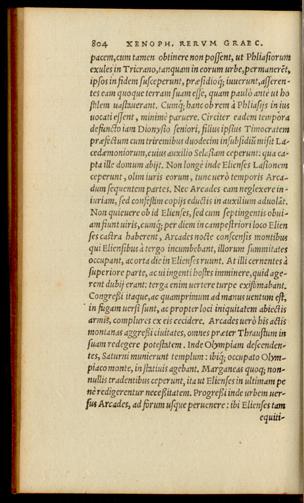 804 XENOPH. RERVM GRAEC.
pacem, cum tamen obtinere non possent, ut Phliasiorum
exules in Tricrano, tanquam in eorum urbe, permanerēt,
ipsos in fidem susceperunt, præsidioq́; iuuerunt, asseren-
tes eam quoque terram suam esse, quam paulò ante ut ho
stilem uastauerant. Cumq́; hanc ob rem à Phliasijs in ius
uocati essent, minimè paruere. Circiter eadem tempora
defuncto iam Dionysio seniori, filius ipsius Timocratem
præfectum cum triremibus duodecim in subsidiū misit La
cedæmoniorum, cuius auxilio Selasiam ceperunt: qua ca-
pta ille domum abijt. Non longè inde Elienses Lasionem
ceperunt, olim iuris eorum, tunc uerò temporis Arca-
dum sequentem partes. Nec Arcades eam neglexere in-
iuriam, sed confestim copijs eductis in auxilium aduolāt.
Non quieuere ob id Elienses, sed cum septingentis obui-
am fiunt uiris, cumq́; per diem in campestriori loco Elien
ses castra haberent, Arcades nocte consensis montibus
qui Eliensibus à tergo incumbebant, illorum summitates
occupant, ac orta die in Elienses ruunt. At illi cernentes à
superiore parte, ac ui ingenti hostes imminere, quid age-
rent dubij erant: terga enim uertere turpe existimabant.
Congreßi itaque, ac quamprimum ad manus uentum est,
in fugam uersi sunt, ac propter loci iniquitatem abiectis
armis, complures ex eis cecidere. Arcades uerò his actis
montanas aggreßi ciuitates, omnes præter Thraustum in
suam redegere potestatem. Inde Olympiam descenden-
tes, Saturni munierunt templum: ibiq́; occupato Olym-
piaco monte, in statiuis agebant. Marganeas quoq; non-
nullis tradentibus ceperunt, ita ut Elienses in ultimam pe
nè redigerentur neceßitatem. Progreßi inde urbem uer-
sus Arcades, ad forum usque peruenere: ibi Elienses tam
equiti-